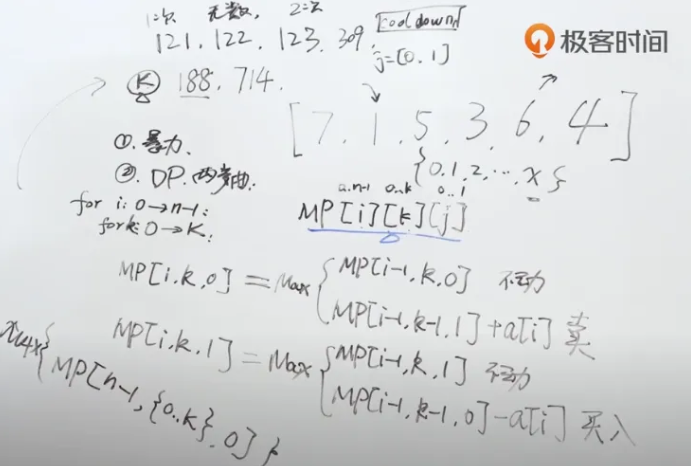 1次 无数, 2次
121. 122. 123. 309. cooldown
j=[0, 1]
极客时间
K 188. 714.
[7, 1, 5, 3, 6, 4]
①. 暴力.
{0, 1, 2, ..., x}
②. DP.
0..n-1 0..k 0..1
for i: 0→n-1:
MP[i][k][j]
for k: 0→K:
MP[i, k, 0] = Max { MP[i-1, k, 0] 不动
MP[i-1, k-1, 1] + a[i] 卖
MP[i, k, 1] = Max { MP[i-1, k, 1] 不动
MP[i-1, k-1, 0] - a[i] 买入
Max { MP[n-1, {0..K}, 0] }